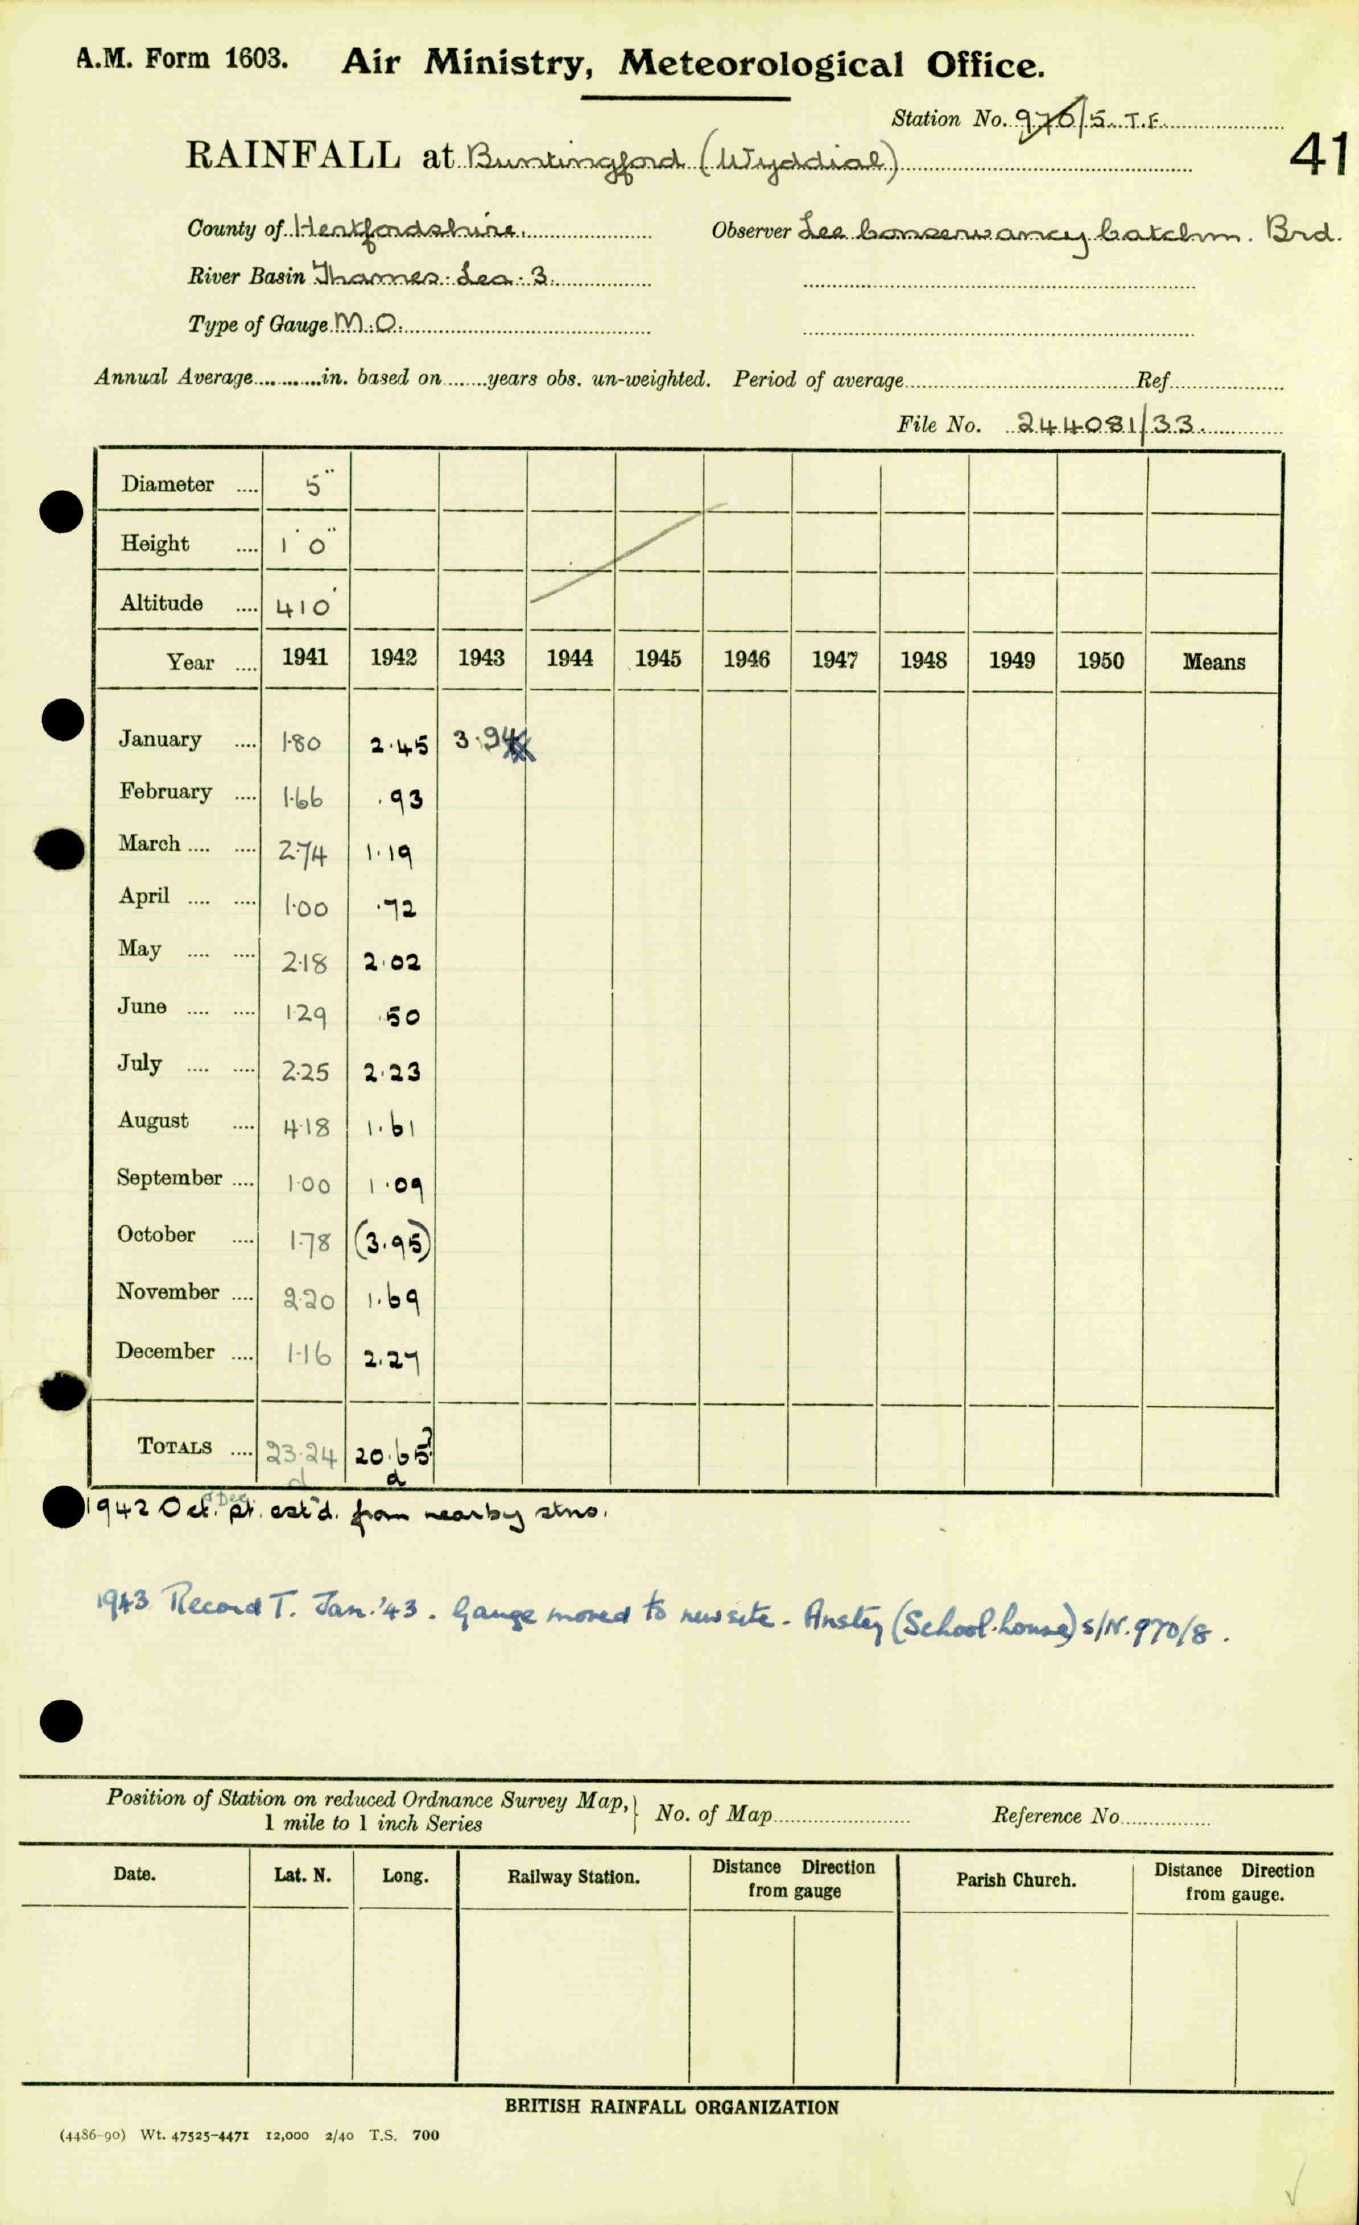 A.M. Form 1603. Air Ministry, Meteorological Office.
Station No. 970/5. T.F.
41
RAINFALL at Buntingford (Wyddial)
County of Hertfordshire. Observer Lee Conservancy Catchm. Brd.
River Basin Thames. Lea. 3.
Type of Gauge M.O.
Annual Average............in. based on........years obs. un-weighted. Period of average........ Ref........
File No. 244081/33.
Diameter .... 5"
Height .... 1' 0"
Altitude .... 410'
Year .... 1941 1942 1943 1944 1945 1946 1947 1948 1949 1950 Means
January .... 1.80 2.45 3.94
February .... 1.66 .93
March .... .... 2.74 1.19
April .... .... 1.00 .72
May .... .... 2.18 2.02
June .... .... 1.29 .50
July .... .... 2.25 2.23
August .... 4.18 1.61
September .... 1.00 1.09
October .... 1.78 (3.95)
November .... 2.20 1.69
December .... 1.16 2.27
TOTALS .... 23.24 20.65?
d d
1942 Oct. & Dec. pt. est'd. from nearby stns.
1943 Record T. Jan. '43. Gauge moved to new site - Anstey (School-house) S/N. 970/8.
Position of Station on reduced Ordnance Survey Map, 1 mile to 1 inch Series } No. of Map........ Reference No........
Date. Lat. N. Long. Railway Station. Distance Direction from gauge Parish Church. Distance Direction from gauge.
BRITISH RAINFALL ORGANIZATION
(4486-90) Wt. 47525-4471 12,000 2/40 T.S. 700